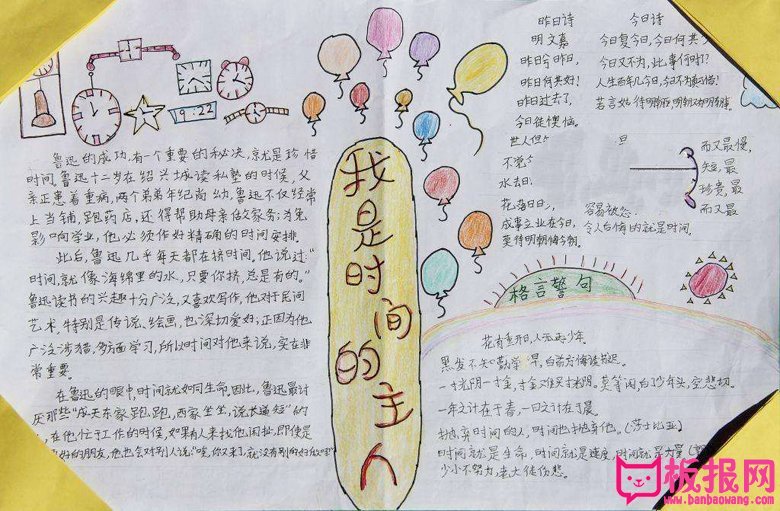 9:22
鲁迅的成功,有一个重要的秘决,就是珍惜
时间。鲁迅十二岁在绍兴城读私塾的时候,父
亲正患着重病,两个弟弟年纪尚幼,鲁迅不仅经常
上当铺,跑药店,还得帮助母亲做家务;为免
影响学业,他必须作好精确的时间安排。
此后,鲁迅几乎每天都在挤时间,他说过:"
时间,就像海绵里的水,只要你挤,总是有的。"
鲁迅读书的兴趣十分广泛,又喜欢写作,他对于民间
艺术,特别是传说、绘画,也深切爱好;正因为他
广泛涉猎,多方面学习,所以时间对他来说,实在非
常重要。
在鲁迅的眼中,时间就如同生命,因此,鲁迅最讨
厌那些"成天东家跑跑,西家坐坐,说长道短"的
在他忙于工作的时候,如果有人来找他闲扯,即使是
的朋友,他也会对别人说:"唉,你又来了,就没有别的好
我是时间的主人
昨日诗
明 文嘉
昨日兮昨日,
昨日何其好!
昨日过去了,
今日徒懊恼。
世人但
水去日
花落日
成事立业在今日,
莫待明朝悔今朝。
今日诗
今日复今日,今日何其
今日又不为,此事何时
人生百年几今日,今日不为真可惜!
若言姑待明朝至,明朝又有明朝事。
而又最慢,
短,最
珍贵,最
而又最
容易被忽
令人后悔的就是时间。
格言警句
花有重开日,人无再少年。
黑发不知勤学早,白首方悔读书迟。
一寸光阴一寸金,寸金难买寸光阴。莫等闲,白了少年头,空悲切。
一年之计在于春,一日之计在于晨。
抛弃时间的人,时间也抛弃他。(莎士比亚)
时间就是生命,时间就是速度,时间就是力量
少小不努力,老大徒伤悲。
板报网
www.banbaowang.com